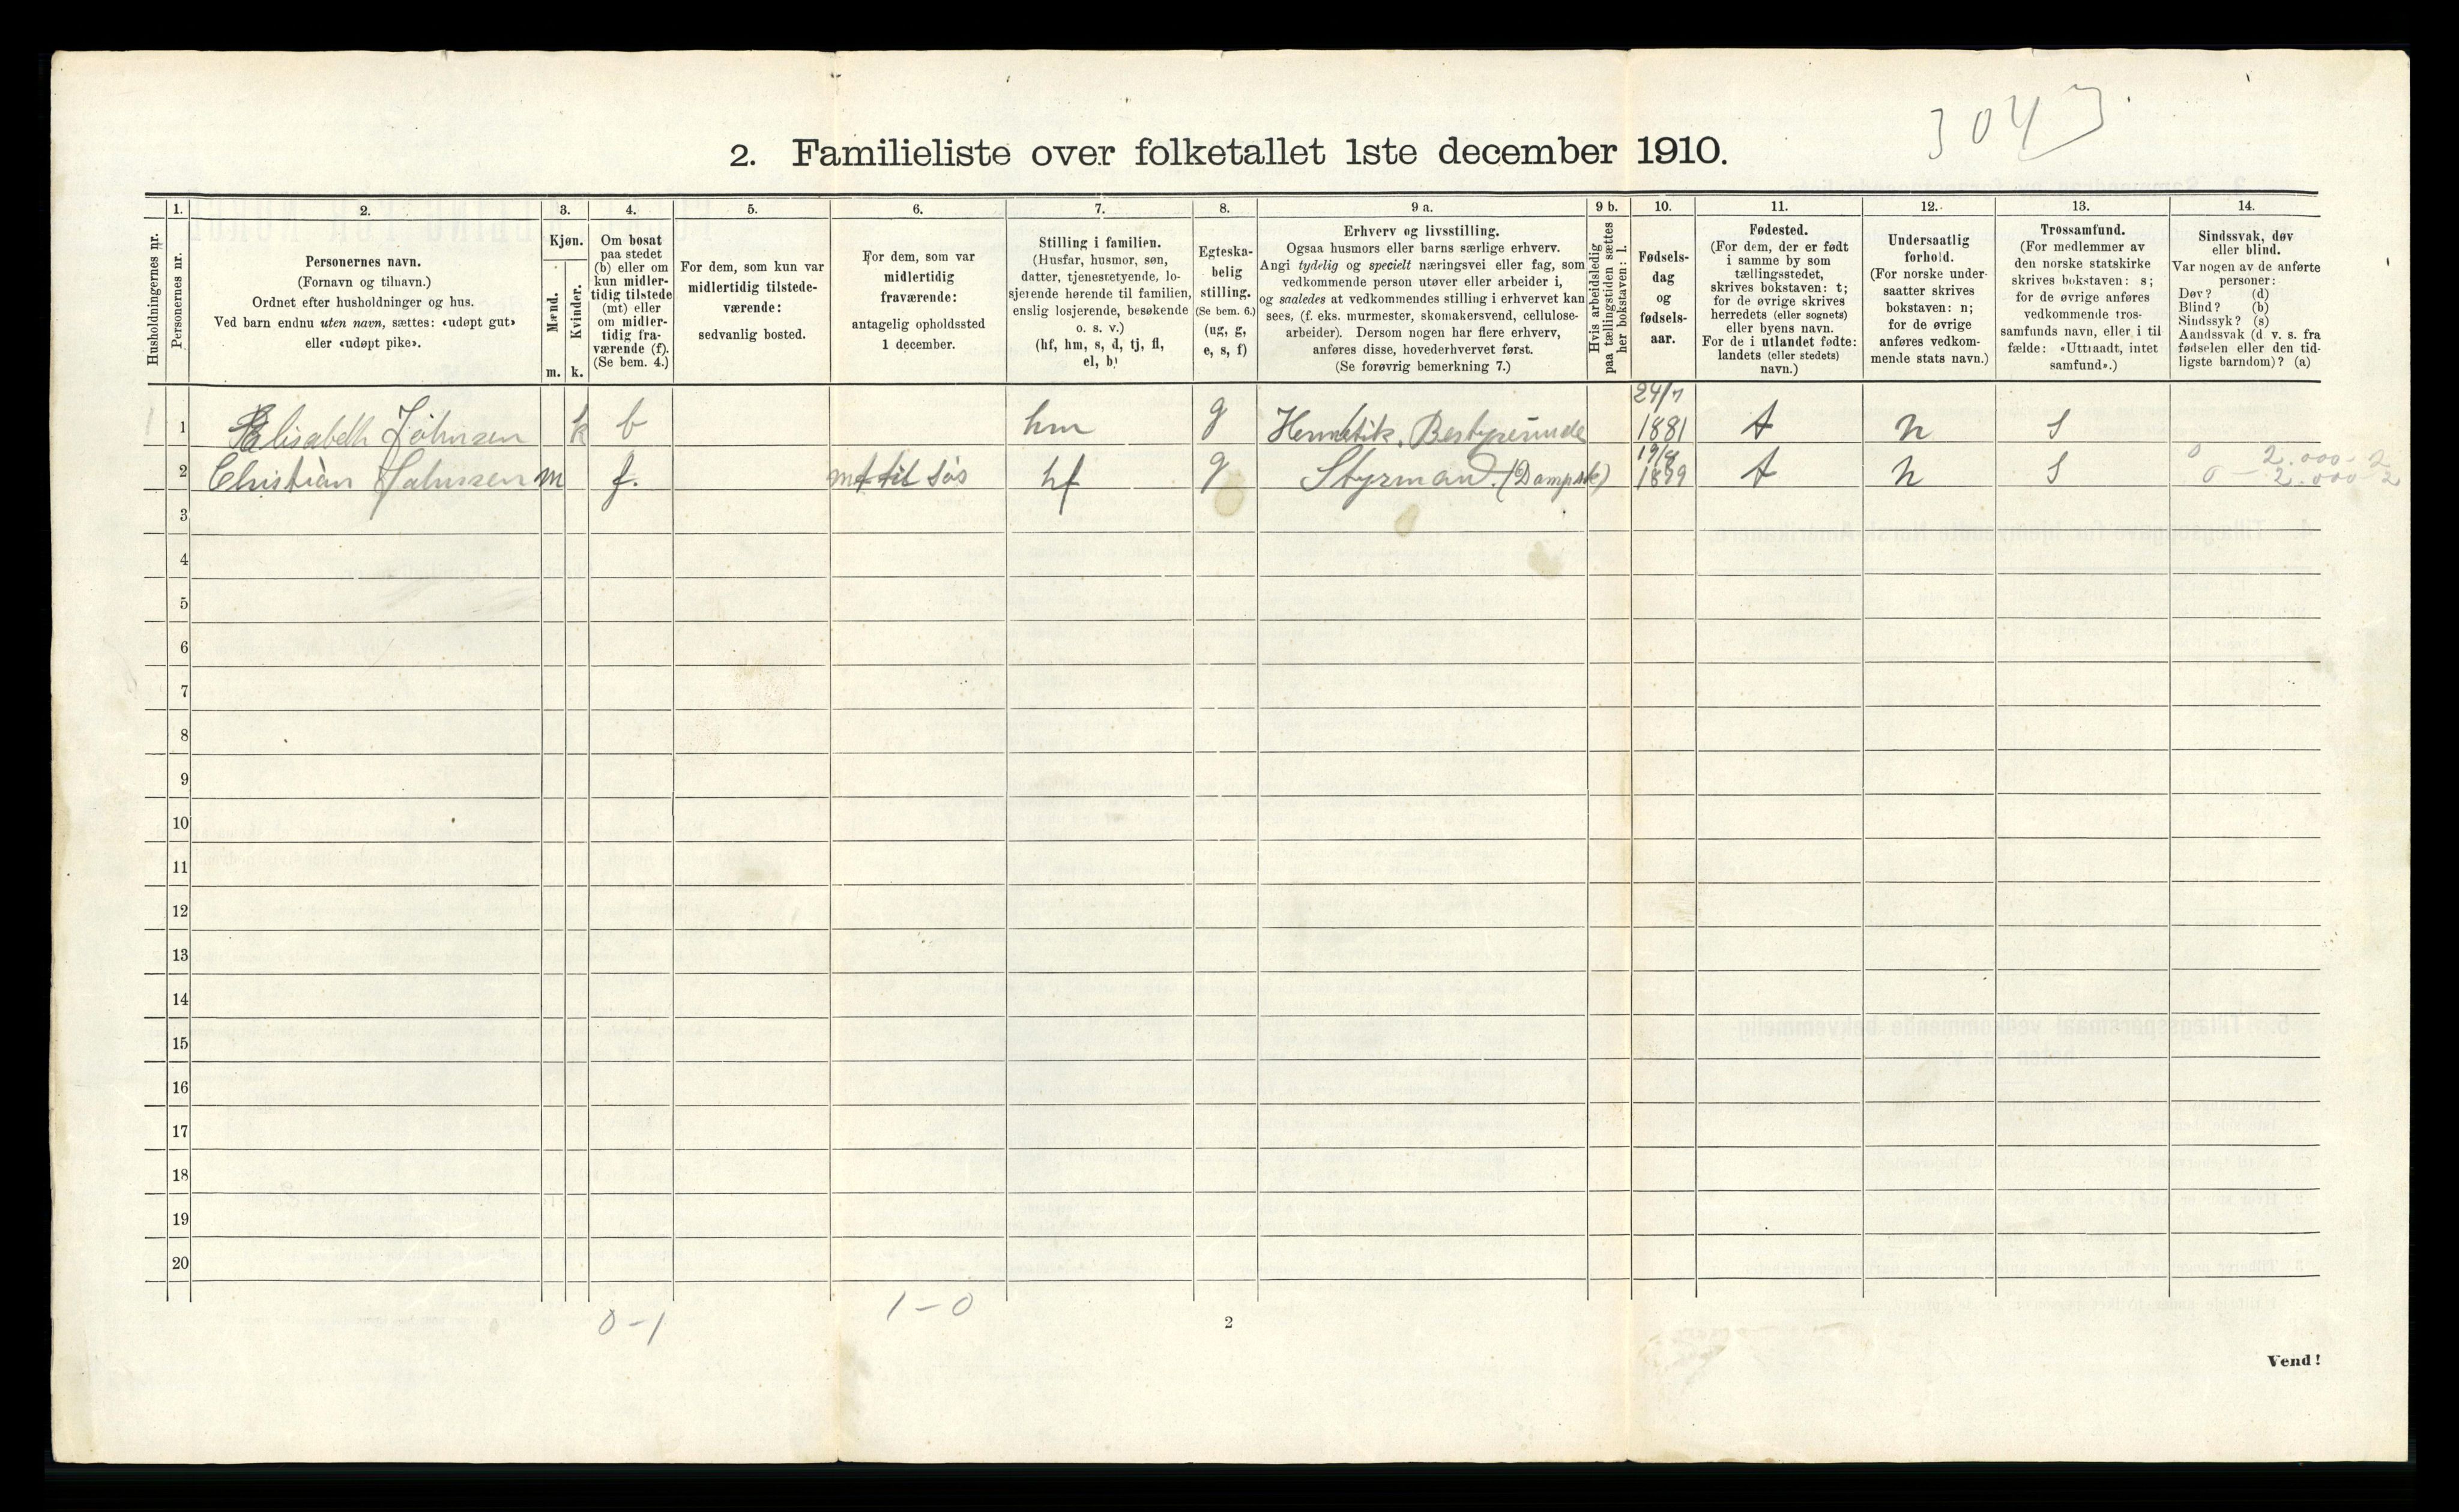 3043
2. Familieliste over folketallet 1ste december 1910.
Husholdningernes nr.
1.
Personernes nr.
2.
Personernes navn.
(Fornavn og tilnavn.)
Ordnet efter husholdninger og hus.
Ved barn endnu uten navn, sættes: «udøpt gut»
eller «udøpt pike».
3.
Kjøn.
Mænd.
m.
Kvinder.
k.
4.
Om bosat
paa stedet
(b) eller om
kun midler-
tidig tilstede
(mt) eller
om midler-
tidig fra-
værende (f).
(Se bem. 4.)
5.
For dem, som kun var
midlertidig tilstede-
værende:
sedvanlig bosted.
6.
For dem, som var
midlertidig
fraværende:
antagelig opholdssted
1 december.
7.
Stilling i familien.
(Husfar, husmor, søn,
datter, tjenestetyende, lo-
sjerende hørende til familien,
enslig losjerende, besøkende
o. s. v.)
(hf, hm, s, d, tj, fl,
el, b)
8.
Egteska-
belig
stilling.
(Se bem. 6.)
(ug, g,
e, s, f)
9 a.
Erhverv og livsstilling.
Ogsaa husmors eller barns særlige erhverv.
Angi tydelig og specielt næringsvei eller fag, som
vedkommende person utøver eller arbeider i,
og saaledes at vedkommendes stilling i erhvervet kan
sees, (f. eks. murmester, skomakersvend, cellulose-
arbeider). Dersom nogen har flere erhverv,
anføres disse, hovederhvervet først.
(Se forøvrig bemerkning 7.)
9 b.
Hvis arbeidsledig
paa tællingstiden sættes
her bokstaven: l.
10.
Fødsels-
dag
og
fødsels-
aar.
11.
Fødested.
(For dem, der er født
i samme by som
tællingsstedet,
skrives bokstaven: t;
for de øvrige skrives
herredets (eller sognets)
eller byens navn.
For de i utlandet fødte:
landets (eller stedets)
navn.)
12.
Undersaatlig
forhold.
(For norske under-
saatter skrives
bokstaven: n;
for de øvrige
anføres vedkom-
mende stats navn.)
13.
Trossamfund.
(For medlemmer av
den norske statskirke
skrives bokstaven: s;
for de øvrige anføres
vedkommende tros-
samfunds navn, eller i til
fælde: «Uttraadt, intet
samfund».)
14.
Sindssvak, døv
eller blind.
Var nogen av de anførte
personer:
Døv? (d)
Blind? (b)
Sindssyk? (s)
Aandssvak (d. v. s. fra
fødselen eller den tid-
ligste barndom)? (a)
1 Elisabeth Johnsen k b hm g Hermetik. Bestyrerinde 24/7 1881 t n s
0 2.000-2
2 Christian Johnsen m f. til søs hf g Styrmand. (Dampsk) 19/8 t n s 0 - 2.000-2
3
4
5
6
7
8
9
10
11
12
13
14
15
16
17
18
19
20
0-1
1-0
2
Vend!